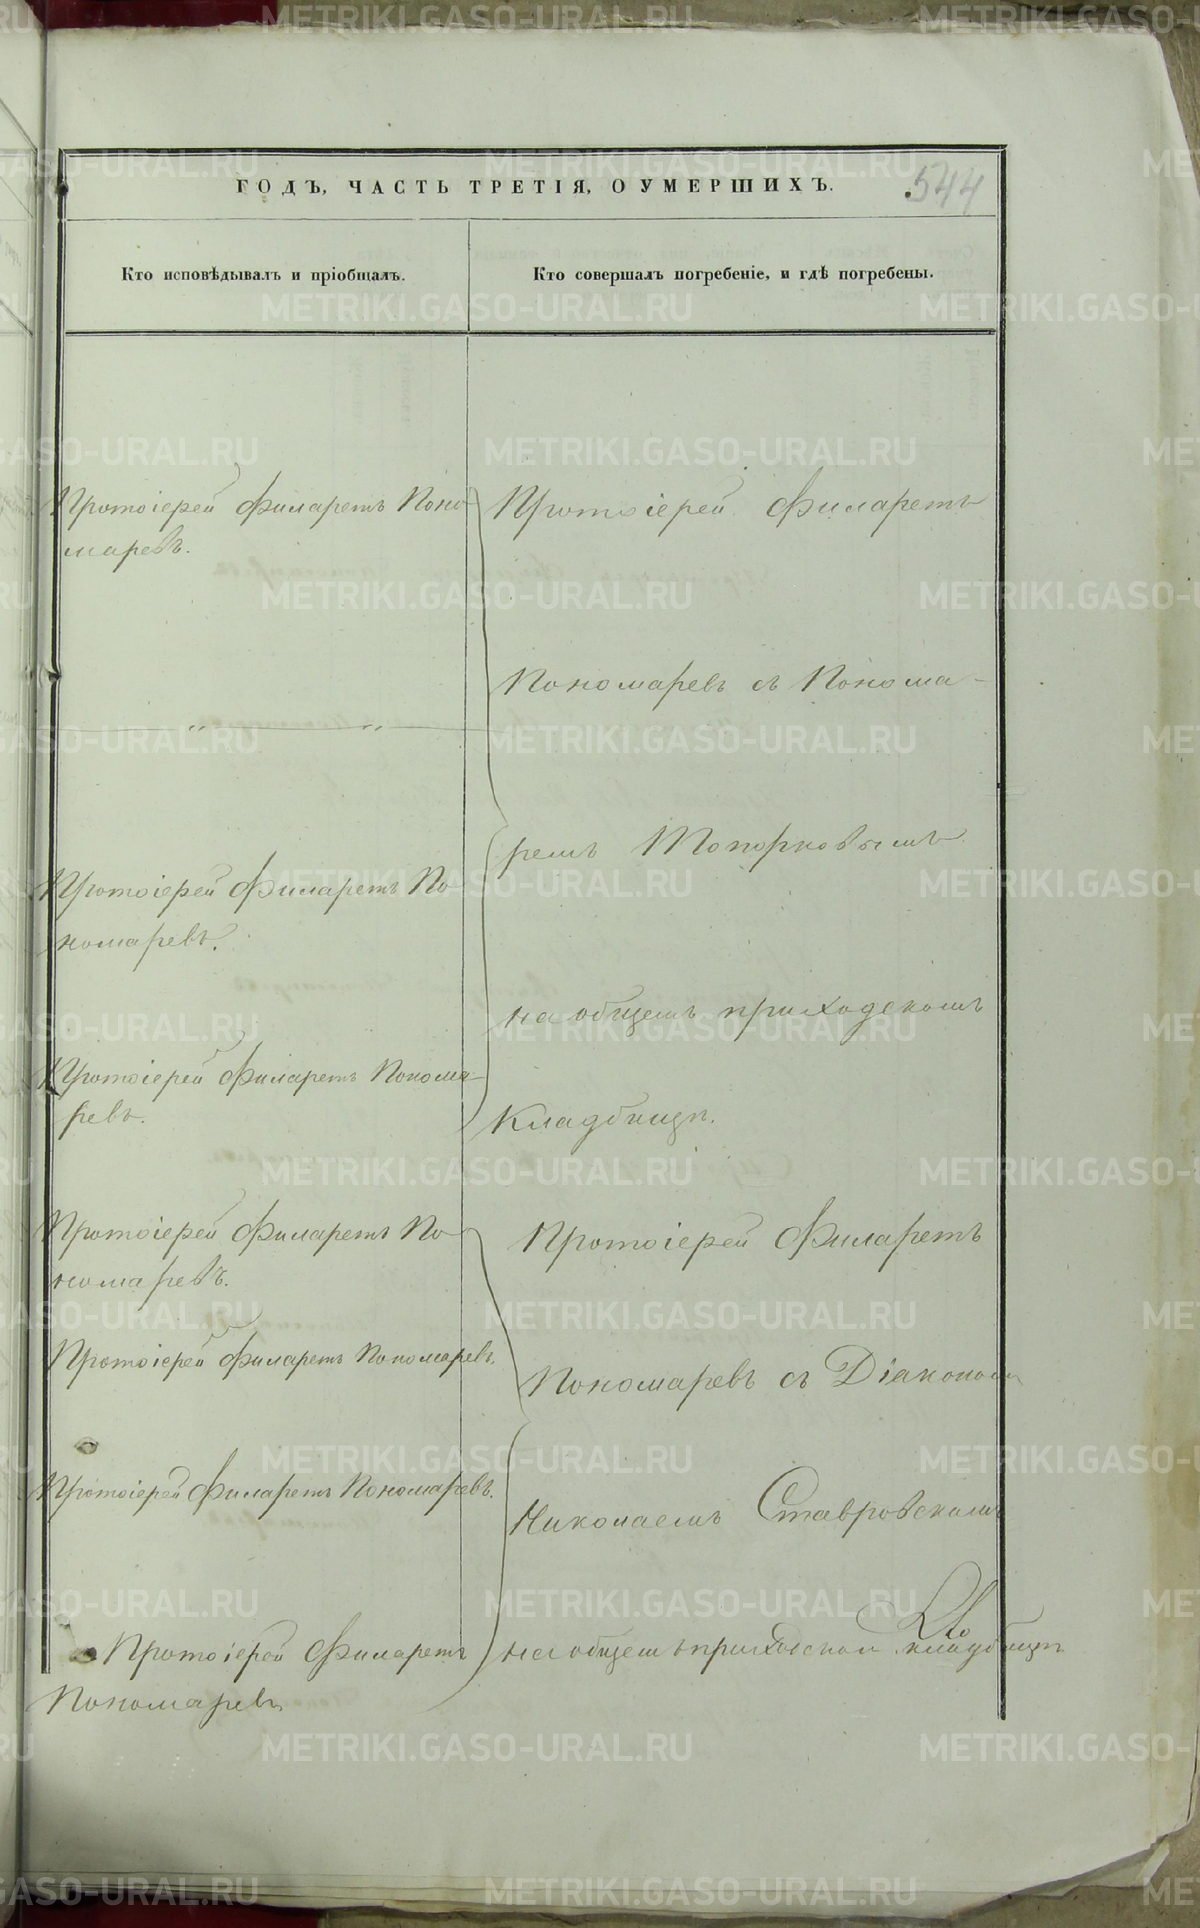 ГОДЪ, ЧАСТЬ ТРЕТІЯ, О УМЕРШИХЪ.
544
Кто исповѣдывалъ и пріобщалъ.
Кто совершалъ погребеніе, и гдѣ погребены.
Протоіерей Филаретъ Поно-
маревъ.
" "
Протоіерей Филаретъ По-
номаревъ.
Протоіерей Филаретъ Понома-
ревъ.
Протоіерей Филаретъ По-
номаревъ.
Протоіерей Филаретъ Пономаревъ.
Протоіерей Филаретъ Пономаревъ.
Протоіерей Филаретъ
Пономаревъ
Протоіерей Филаретъ
Пономаревъ съ Понома-
ремъ Топорковымъ
на общемъ приходскомъ
кладбищѣ.
Протоіерей Филаретъ
Пономаревъ съ Діакономъ
Николаемъ Ставровскимъ
на общемъ приходском кладбищѣ
METRIKI.GASO-URAL.RU